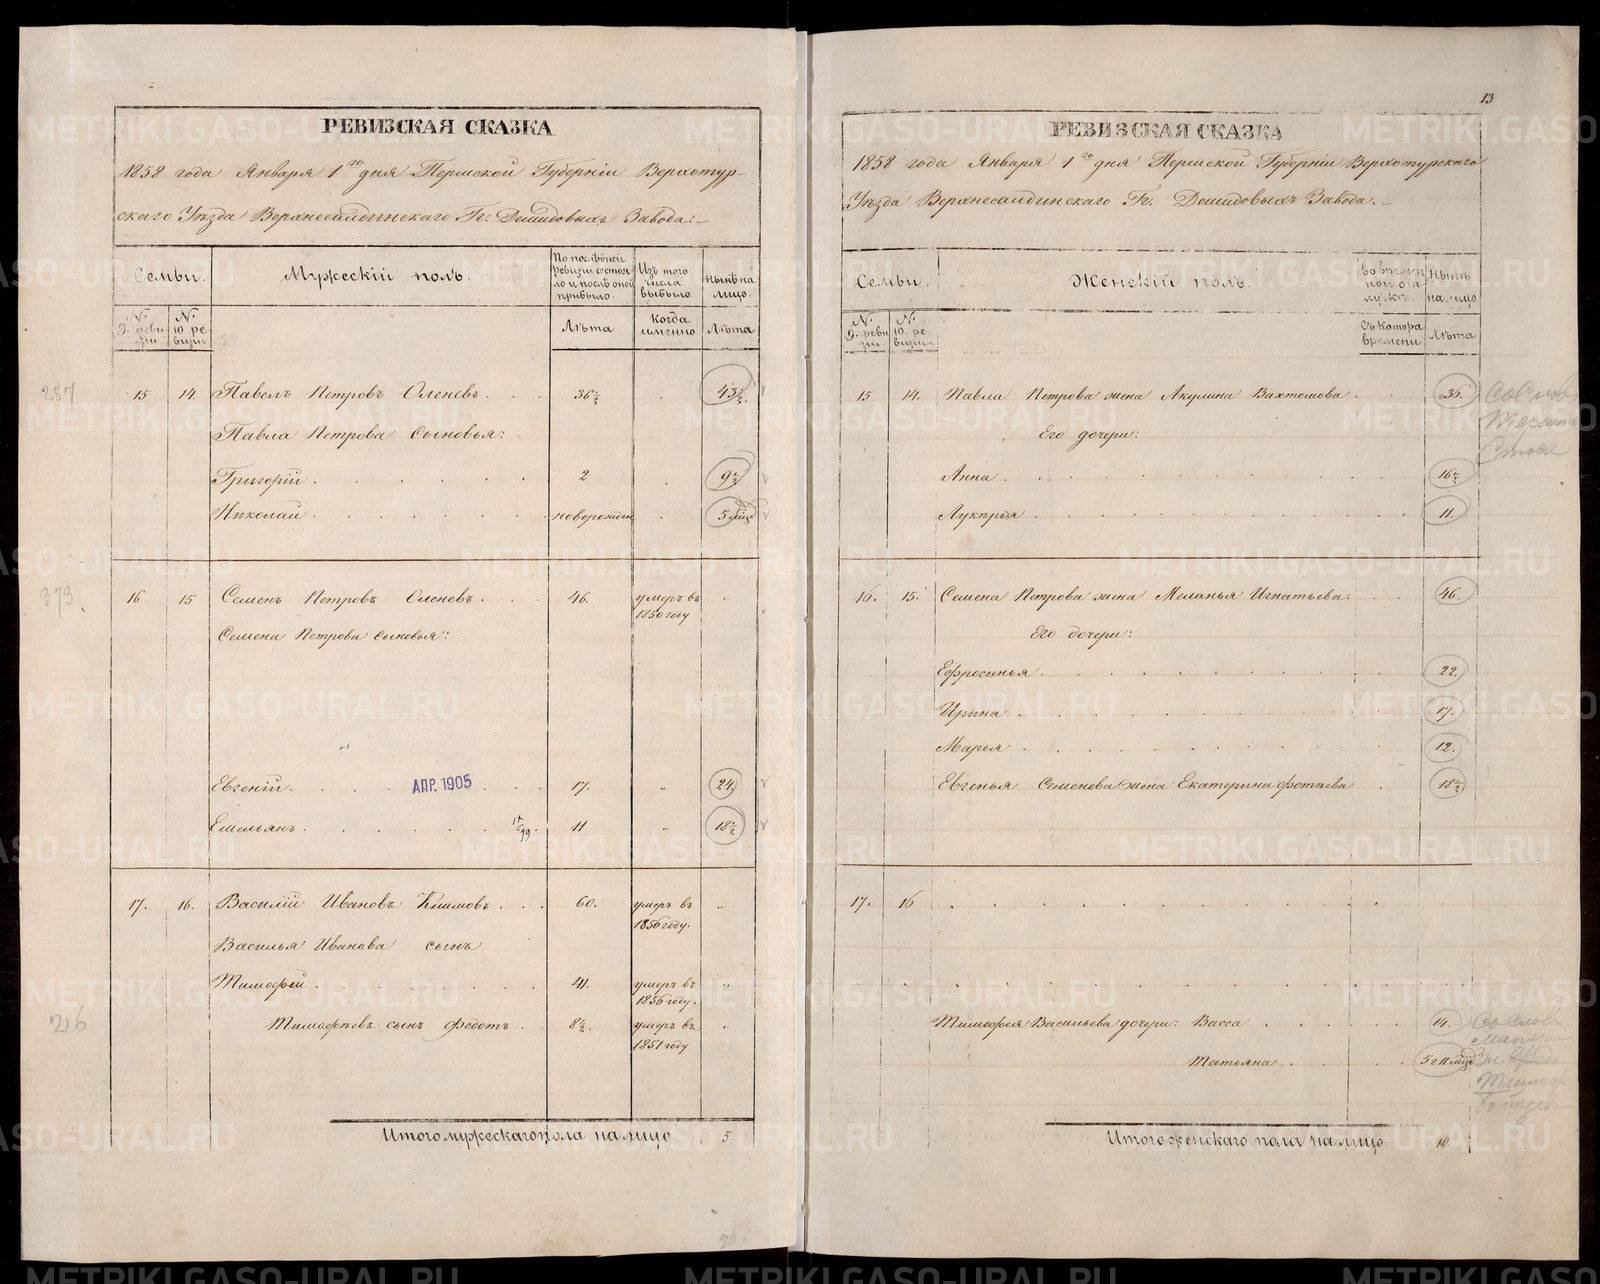 РЕВИЗСКАЯ СКАЗКА
1858 года Января 1го дня Пермской Губернiи Верхотур-
скаго Уѣзда Верхнесалдинскаго Гг. Демидовыхъ Завода:-
Семьи.
Мужескiй полъ.
По послѣдней ревизiи состояло и послѣ оной прибыло.
Изъ того числа выбыло
Нынѣ на лицо.
№ 9. ревизiи
№ 10 ревизiи
Лѣта
Когда именно
Лѣта
287
15 14. Павелъ Петровъ Оленевъ. 36½ 43½.
Павла Петрова Сыновья:
Григорiй 2 9½
Николай новорожден 5 мѣсц
373.
16 15 Семенъ Петровъ Оленевъ. 46. умеръ въ 1850 году
Семена Петрова сыновья:
Евгенiй. АПР. 1905 17. 24.
Емельянъ 11 18½
17. 16. Василiй Ивановъ Климовъ 60. умеръ въ 1856 году.
Василья Иванова сынъ
Тимофей 41. умеръ въ 1856 году.
216
Тимофѣевъ сынъ Федотъ 8½. умеръ въ 1851 году
Итого мужескаго пола на лицо 5.
13
РЕВИЗСКАЯ СКАЗКА
1858 года Января 1го дня Пермской Губернiи Верхотурскаго
Уѣзда Верхнесалдинскаго Гг. Демидовыхъ Завода.-
Семьи.
Женскiй полъ.
Во временной отлучкѣ.
Нынѣ на лицо
№ 9. ревизiи
№ 10. ревизiи
Съ котора времени
Лѣта
15 14. Павла Петрова жена Акулина Вахтомова 35.
Его дочери:
Анна 16½
Лукерья 11.
16. 15. Семена Петрова жена Меланья Игнатьева. 46.
Его дочери:
Ефросинья 22.
Ирина 17.
Марья 12.
Евгенья Семенова жена Екатерина Фотѣева 18½
17. 16
Тимофея Васильева дочери: Васса 14.
Татьяна 5 и 11 мѣсц
Итого женскаго пола на лицо 10.
METRIKI.GASO-URAL.RU